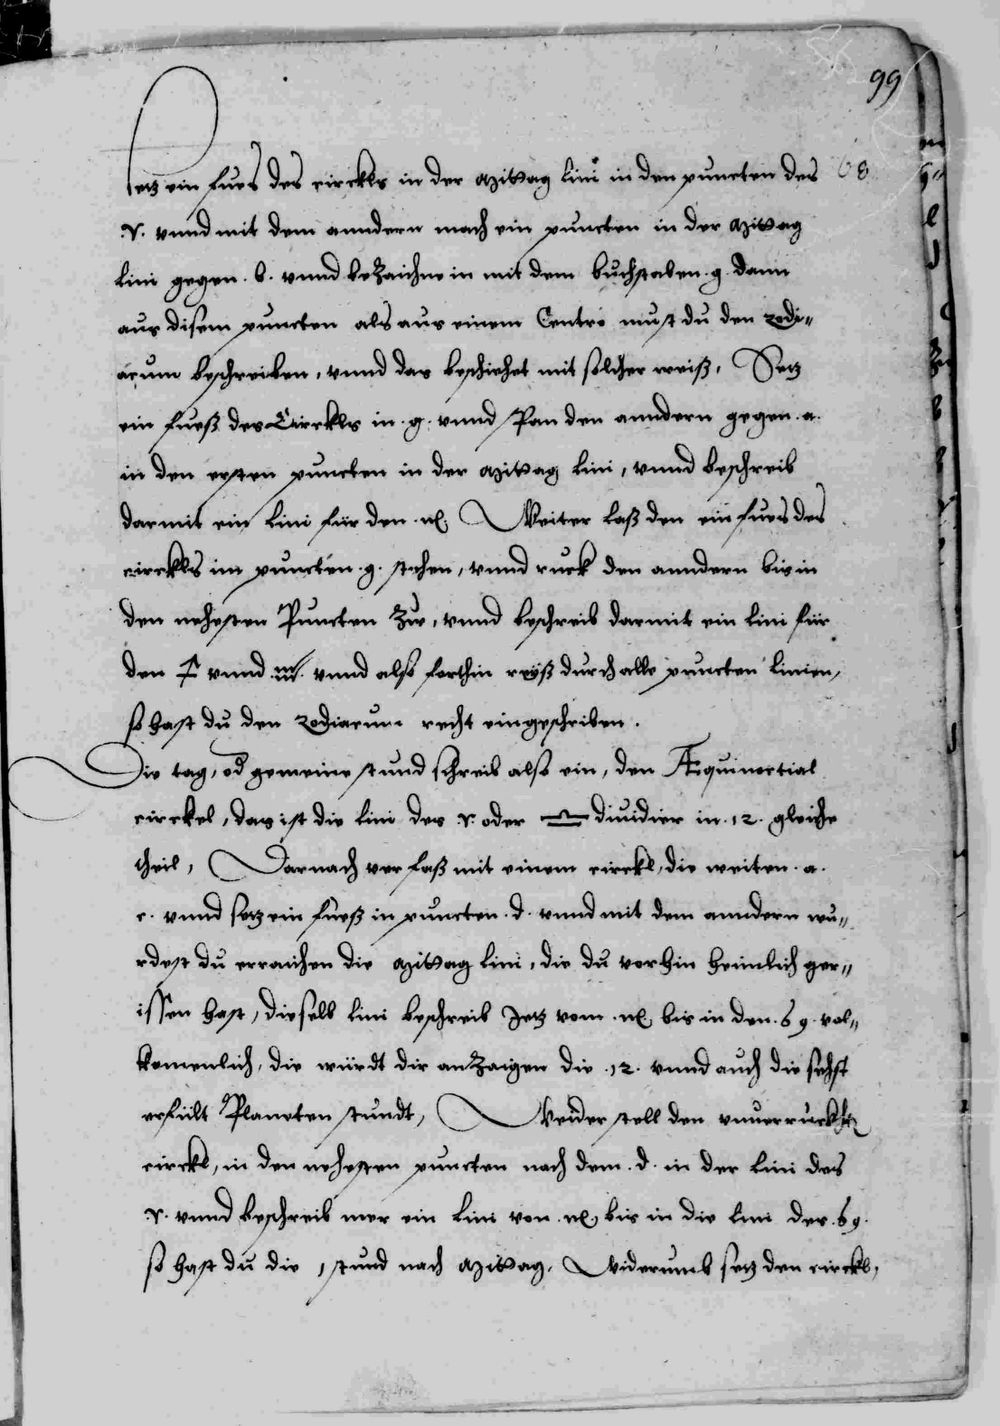 99
68
Setz ein fues des circkls in der Mittag lini in den puncten des
♈. vnnd mit dem anndern mach ein puncten in der Mittag
lini gegen .b. vnnd beZaichne in mit dem buchstaben .g. dann
aus disem puncten als aus einem Centro must du den zodi„
acum beschreiben, vnnd das beschiehet mit solcher weiß, Setz
ein fueß des Circkls in .g. vnnd span den anndern gegen .a.
in den ersten puncten in der Mittag lini, vnnd beschreib
darmit ein lini für den .♑. Weiter laß den ein fues des
circkls im puncten .g. stehen, vnnd ruck den anndern bis in
den nehesten Puncten Zue, vnnd beschreib darmit ein lini für
den ♐ vnnd ♒. vnnd also forthin reyß durch alle puncten linien,
so hast du den zodiacum recht eingeschriben.
Die tag, od gemeine stund schreib also ein, den Æquinoctial
circkel, das ist die lini des ♈. oder ♎ diuidier in .12. gleiche
theil, Darnach verfaß mit einem circkl, die weiten .a.
c. vnnd setz ein fueß in puncten .d. vnnd mit dem anndern wu„
rdest du erraichen die Mittag lini, die du vorhin heimlich ger„
issen hast, dieselb lini beschreib Jetz vom .♑. bis in den .♋. vol„
komenlich, die würdt dir anZaigen die .12. vnnd auch die sechst
erfült Planeten stundt, Weider stell den vnuerruckhten
circkl, in den nehesten puncten nach dem .d. in der lini des
♈. vnnd beschreib mer ein lini von .♑. bis in die lini des .♋.
so hast du die 1 stund nach Mittag. Widerumb setz den circkl,